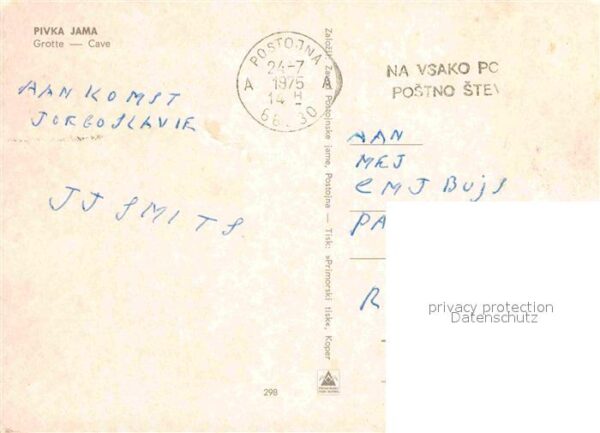 PIVKA JAMA
Grotte — Cave
POSTOJNA
24-7
1975
A A
14 H
66230
NA VSAKO PO
POŠTNO ŠTEV
AANKOMST
JOEGOSLAVIE
JJ SMITS
Založil: Zavod Postojnske jame, Postojna — Tisk: »Primorski tisk«, Koper
AAN
MEJ
CMJ Buijs
PA
R
privacy protection
Datenschutz
298